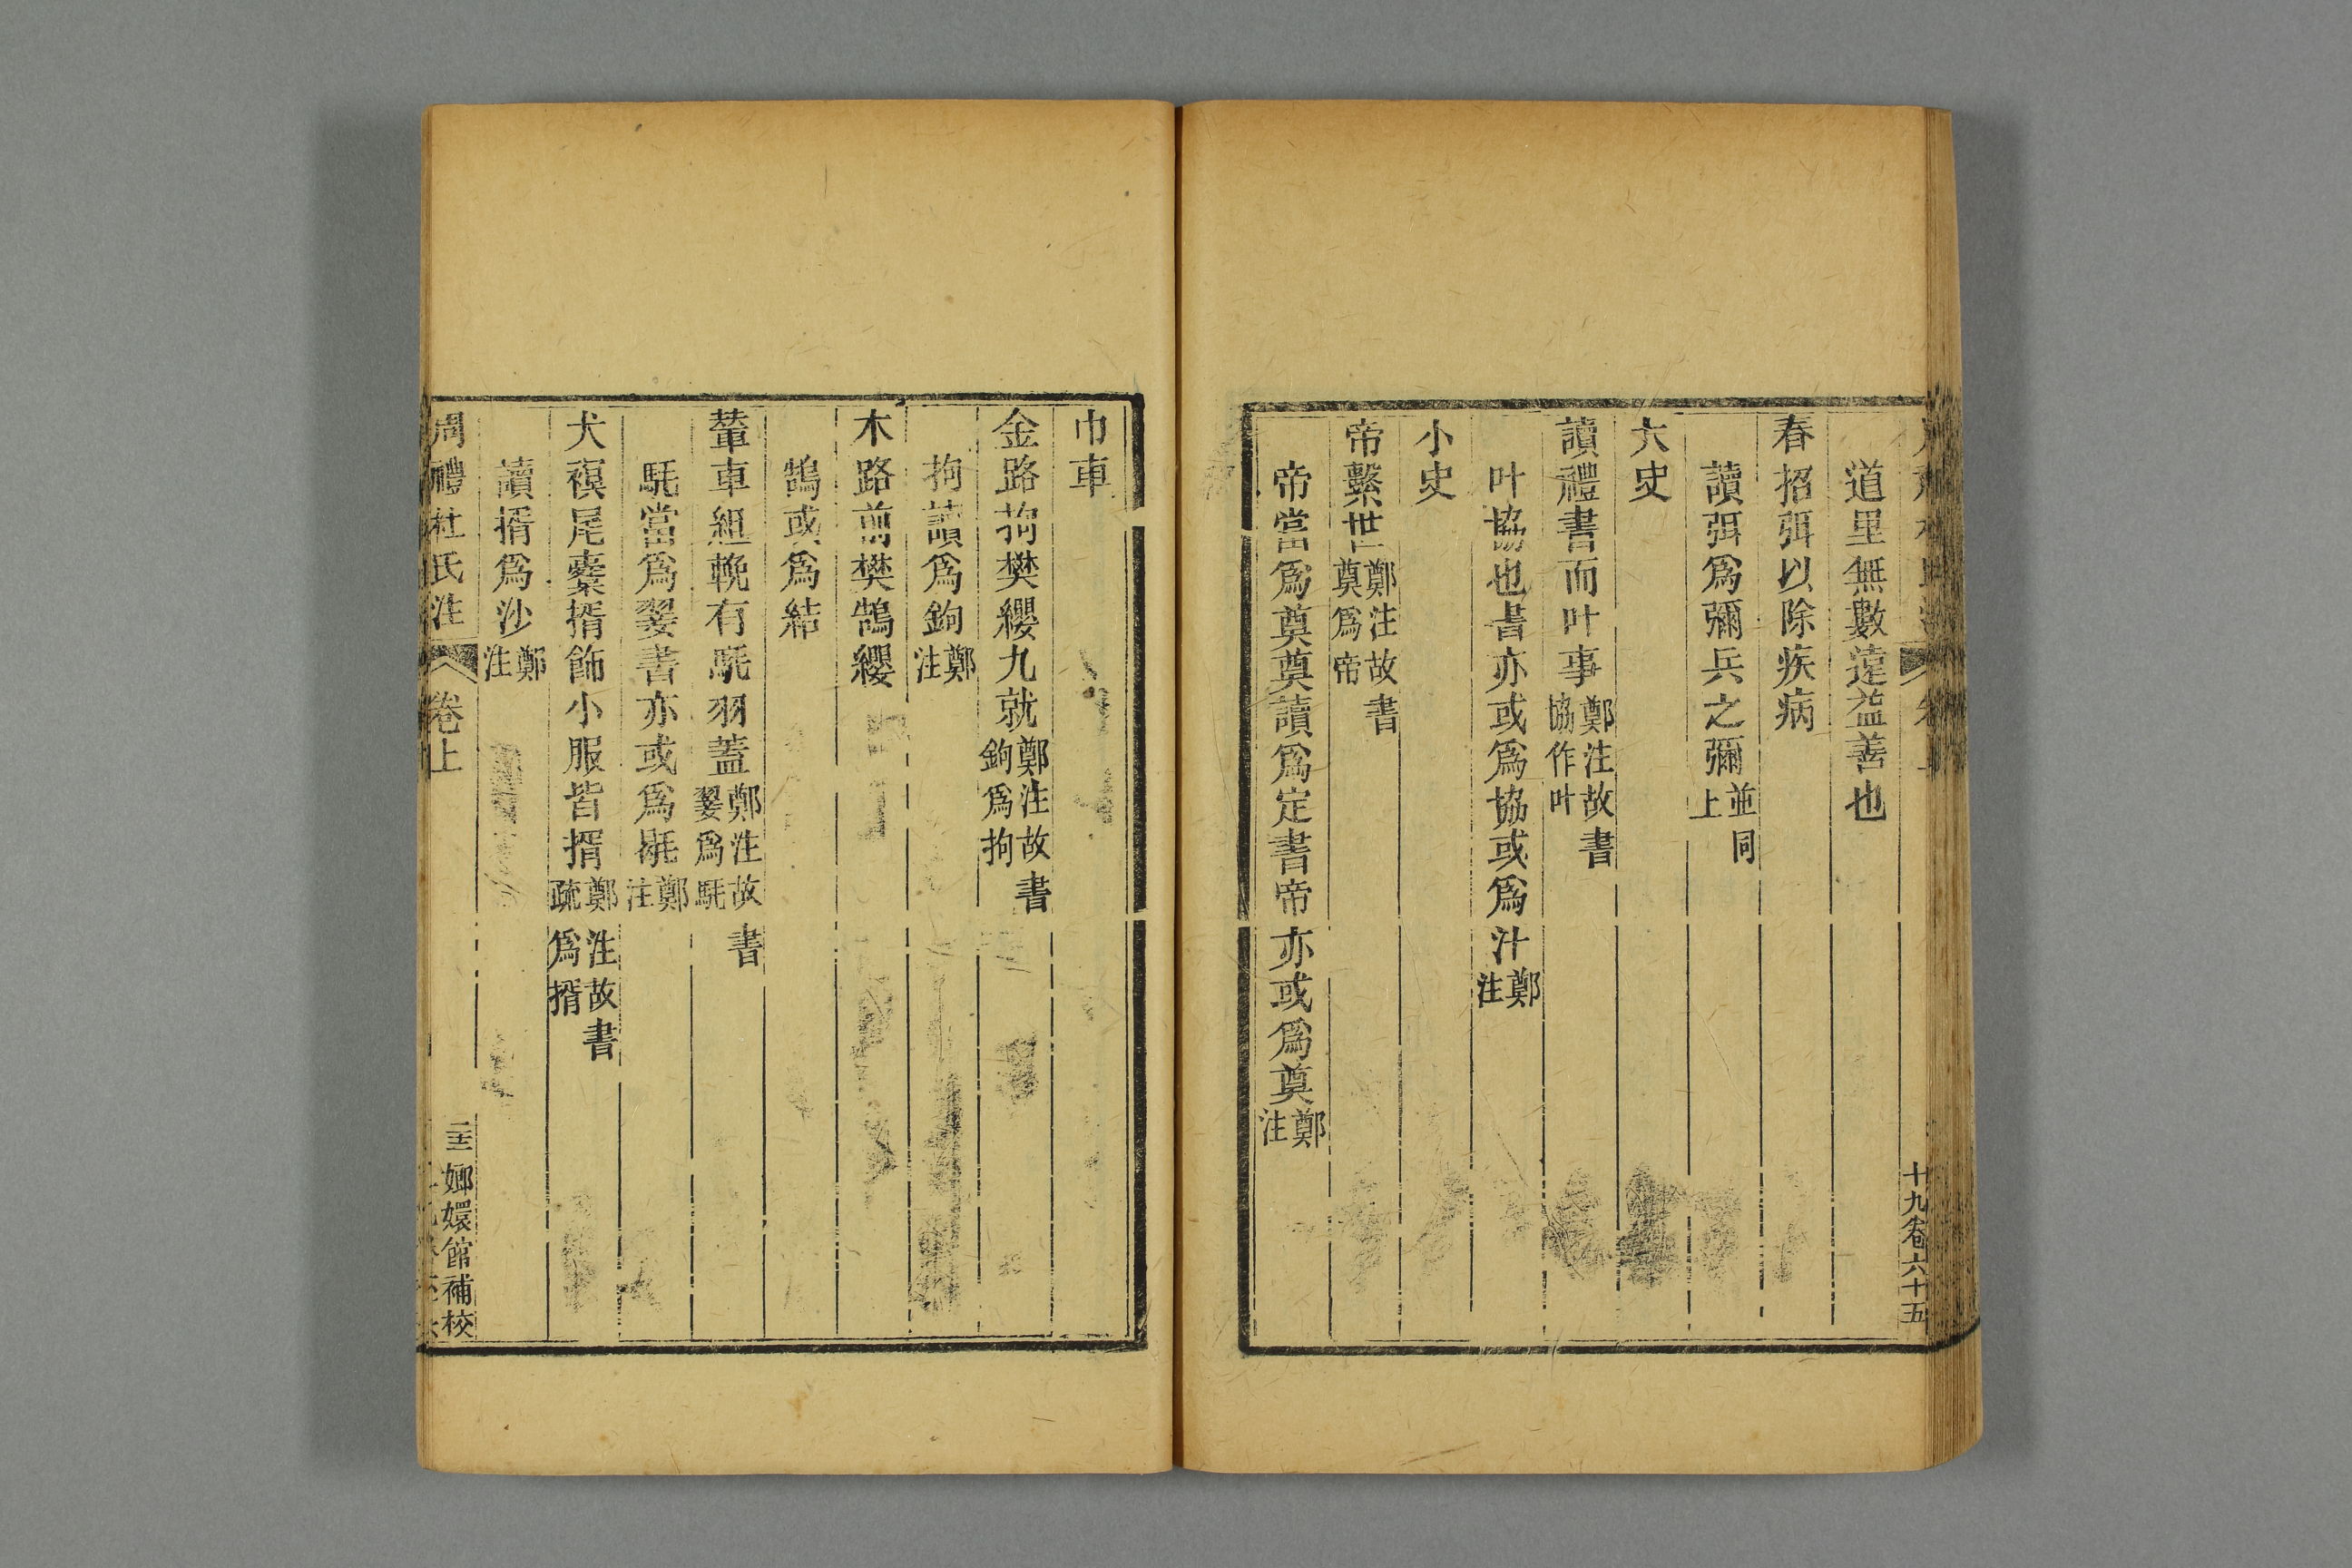 道里無數遠益善也
春招弭以除疾病
讀弭爲彌兵之彌並同上
大史
讀禮書而叶事鄭注故書協作叶
叶協也書亦或爲協或爲汁鄭注
小史
帝繫世鄭注故書奠爲帝
帝當爲奠奠讀爲定書帝亦或爲奠鄭注
十九卷六十五
巾車
金路拘樊纓九就鄭注故書鉤爲拘
拘讀爲鉤鄭注
木路前樊鵠纓
鵠或爲結
輦車組輓有毦羽蓋鄭注故書翣爲毦
毦當爲翣書亦或爲毦鄭注
犬𧜀尾櫜揟飾小服皆揟鄭注故書疏爲揟
讀揟爲沙鄭注
周禮杜氏注 卷上
嫏嬛館補校